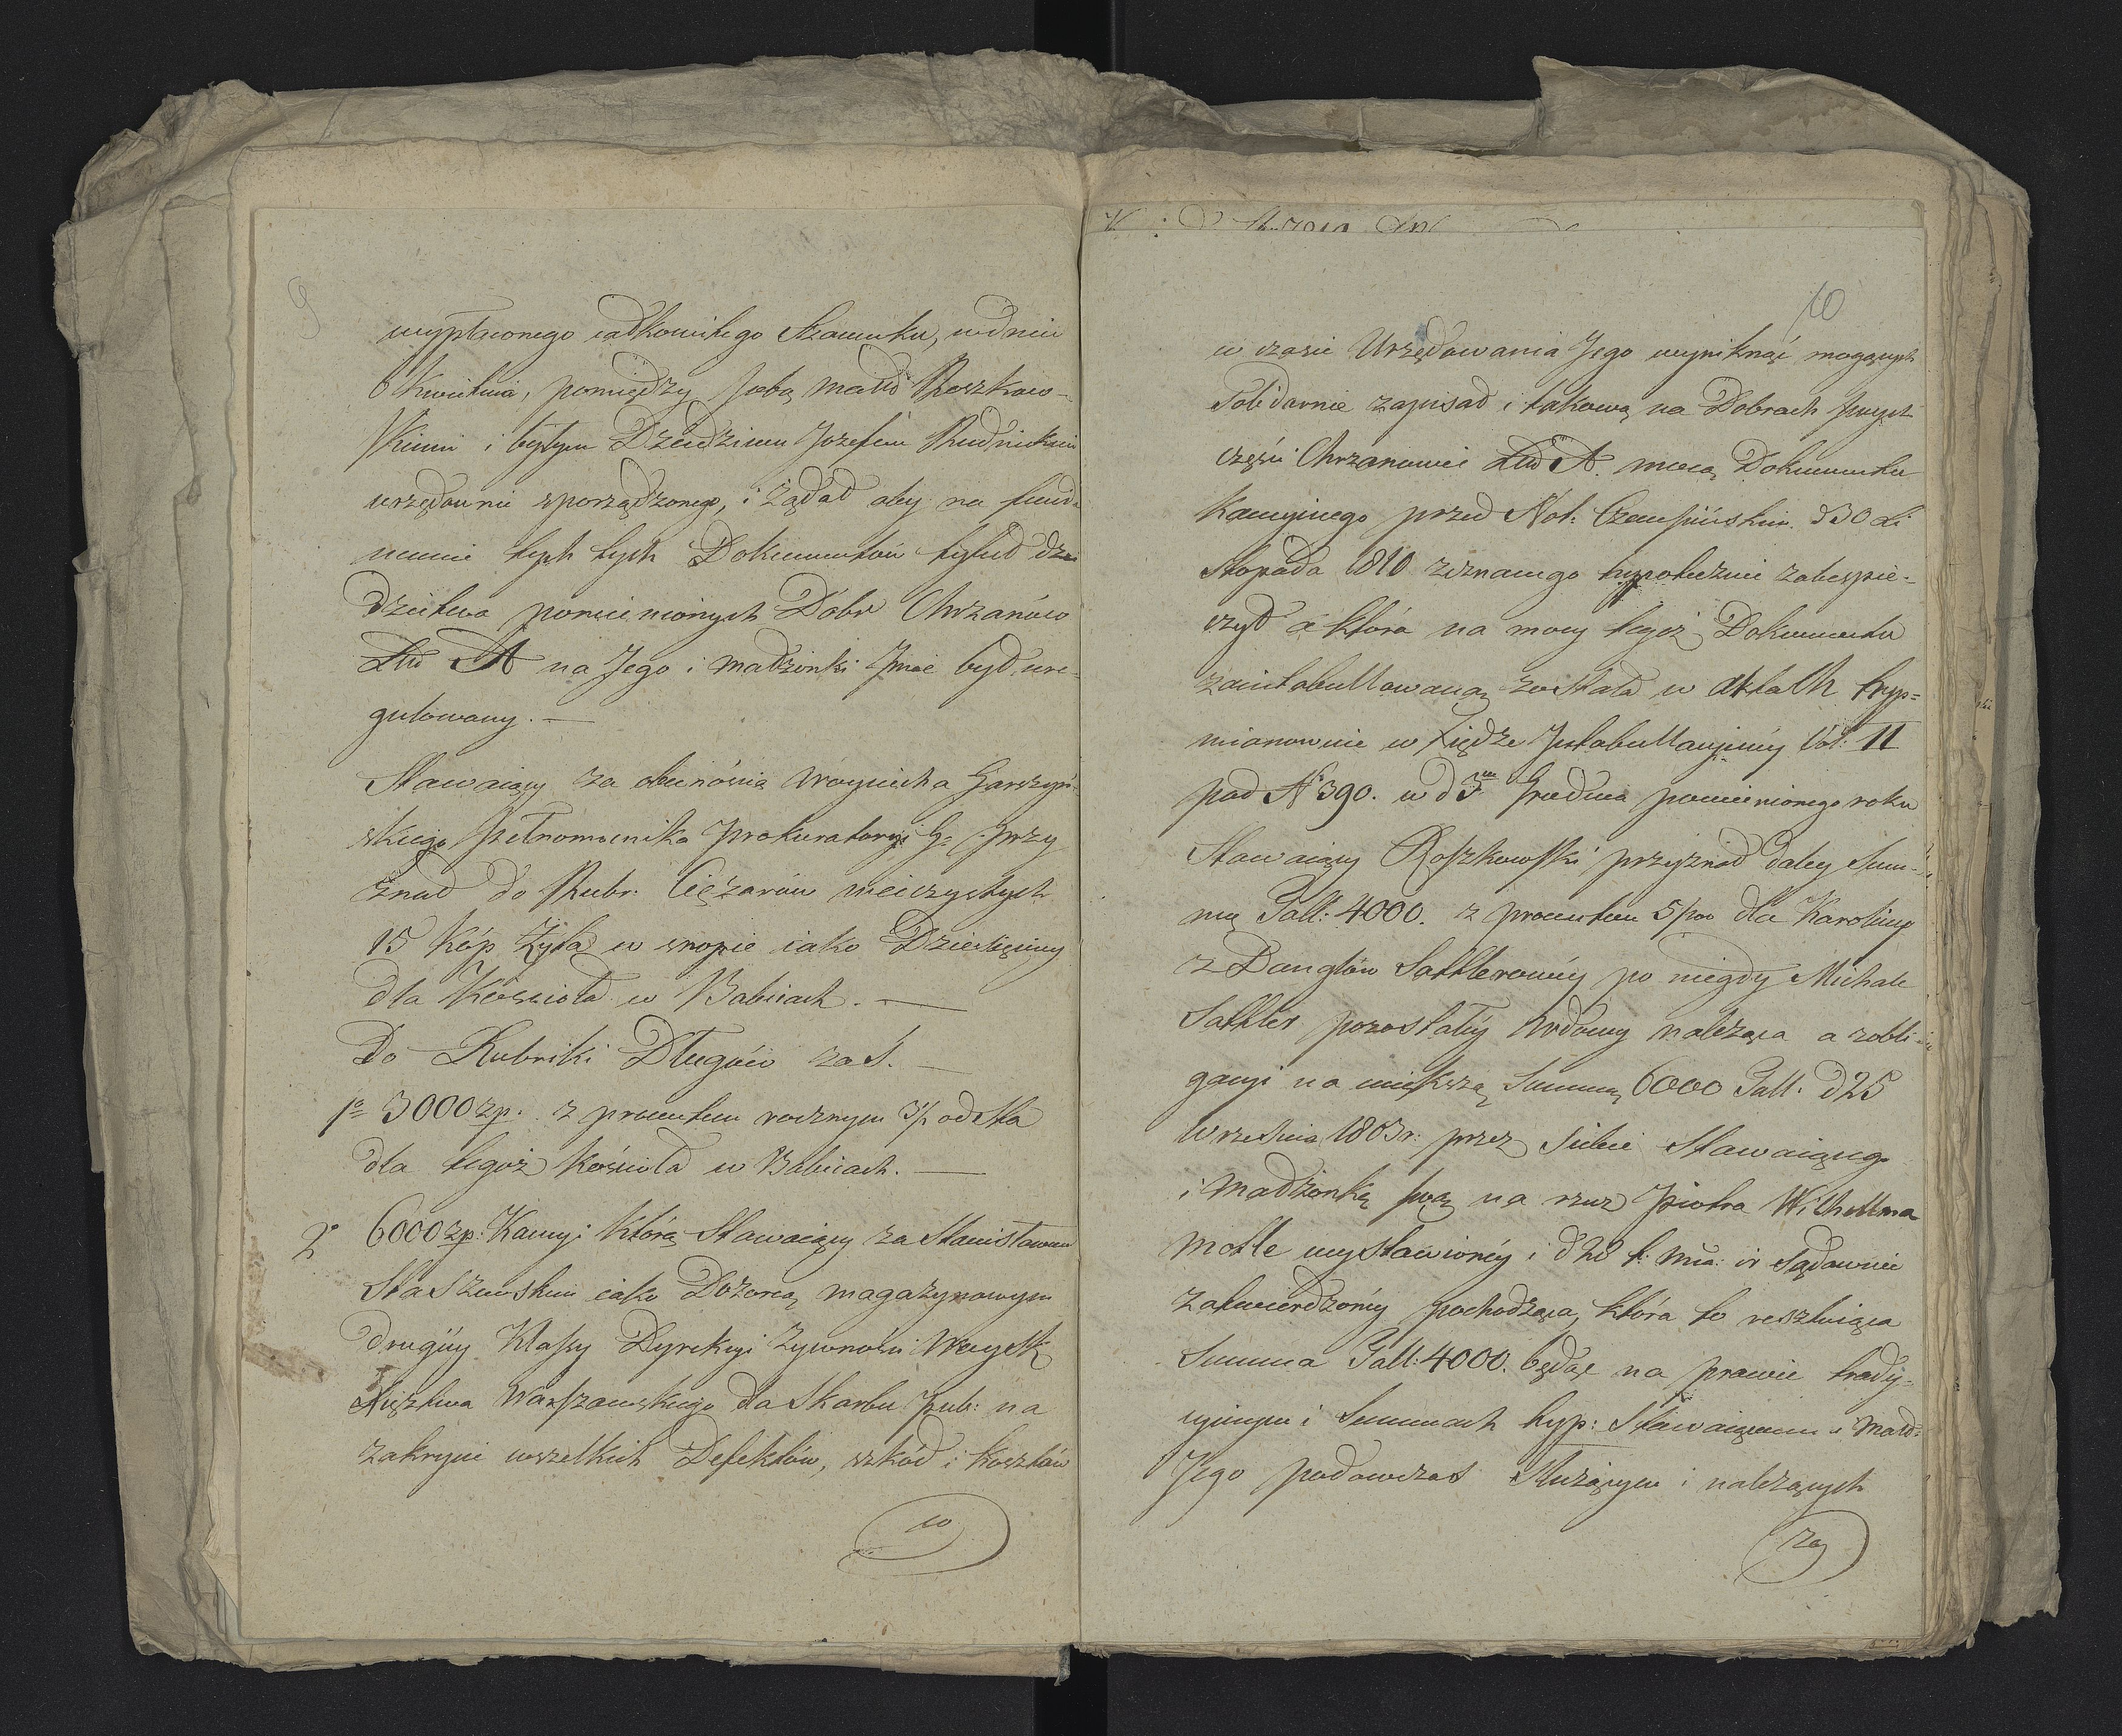 9
wypłaconego całkowitego Szacunku, w dniu
6 Kwietnia, pomiędzy sobą Małż Roszkow-
skiemi i byłym Dziedzicem Jozefem Rudnickim
urzędownie sporządzonego, i żądał aby na funda
mencie tych Dokumentów tytuł dzie
dzictwa pomienionych Dóbr Chrzanów
Litt A na Jego i małżonki Imie był ure-
gulowany. —
Stawaiący za obecnością Woyciecha Garszyń-
skiego Pełnomocnika Prokuratoryi G: przy
znał do Rubr. Ciężarów wieczystych
15 Kóp żyta w snopie iako Dziesięciny
dla Kościoła w Babicach. —
Do Rubriki Długów zaś. —
1o 3000 zp. z procentem rocznym 3 1/2 od sta
dla tegoż Kościoła w Babicach. —
2o 6000 zp: Kaucyi którą Stawaiący za Stanisławem
Staszewskim iako Dozorcą magazynowym
drugiéy Klassy Dyrekcyi żywności Woysk
Xięztwa Warszawskiego dla Skarbu Pub: na
zakrycie wszelkich Defektów, szkód i kosztów
w
10
w czasie Urzędowania Jego wyniknąć mogących
Solidarnie zapisał i takową na Dobrach swych
części Chrzanowie Litt A. mocą Dokumentu
Kaucyinego przed Not: Czempińskim d 30 Li
stopada 1810 zeznanego hypotecznie zabespie-
czył a która na mocy tegoż Dokumentu
zaintabullowaną została w aktach hyp=
mianowicie w Xiędze Intabullacyinéy Vol: II
pod N 390. w d 3m Grudnia pomienionego roku
Stawaiący Roszkowski przyznał daley Sum-
mę Tall: 4000. z procentem 5/100 dla Karoliny
z Danglów Sattlerowéy po niegdy Michale
Sattler pozostałéy Wdowy należąca a z obli-
gacyi na większą Summę 6000 Tall. d 25
Września 1803 r. przez siebie Stawaiącego
i małżonkę swą na rzecz Piotra Wilhelma
Motte wystawionéy i d 28 t. m: i r sądownie
zatwierdzonéy pochodząca, która to resztuiąca
Summa Tall: 4000. będąc na prawie trady-
cyinym i Summach hyp: Stawaiącemu i Małż:
Jego podówczas służącym i należących
za